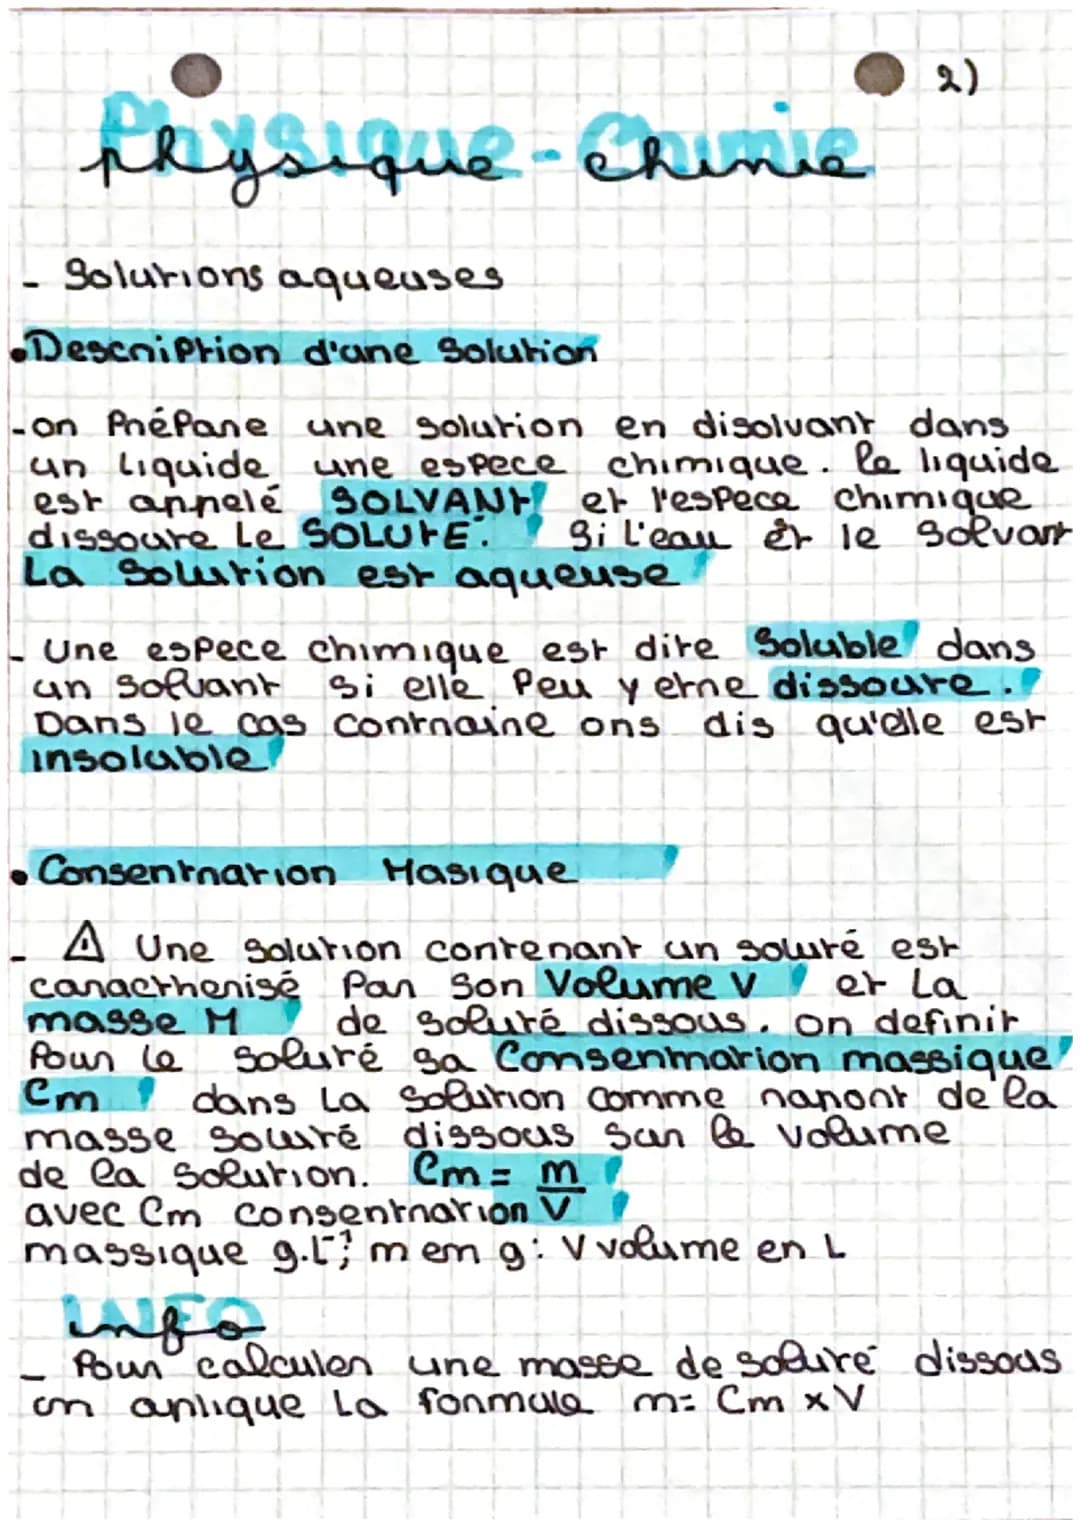 2)
Physique-Chimie
- Solutions aqueuses
• Description d'une Solution
- on Prépare une solution en disolvant dans
un Liquide une espece chimique. le liquide
est appelé SOLVANT et l'espece chimique
dissoute Le SOLUTÉ. Si L'eau èt le solvant
La Solution est aqueuse
- Une espece chimique est dite Soluble dans
un solvant si elle Peu y etre dissoute.
Dans le cas Contraire ons dis qu'elle est
insoluble
• Consentration Masique
- ⚠ Une solution contenant un soluté est
caractherisé Par Son Volume V et La
masse M de soluté dissous. on definit
Pour Le soluté sa Consentration massique
Cm dans La Solution comme raport de la
masse soluté dissous sur le volume
de la solution. Cm = m/V
avec Cm consentration
massique g.L⁻¹; m em g: V volume en L
INFO
- Pour calculer une masse de soluté dissous
on aplique La formule m= Cm x V